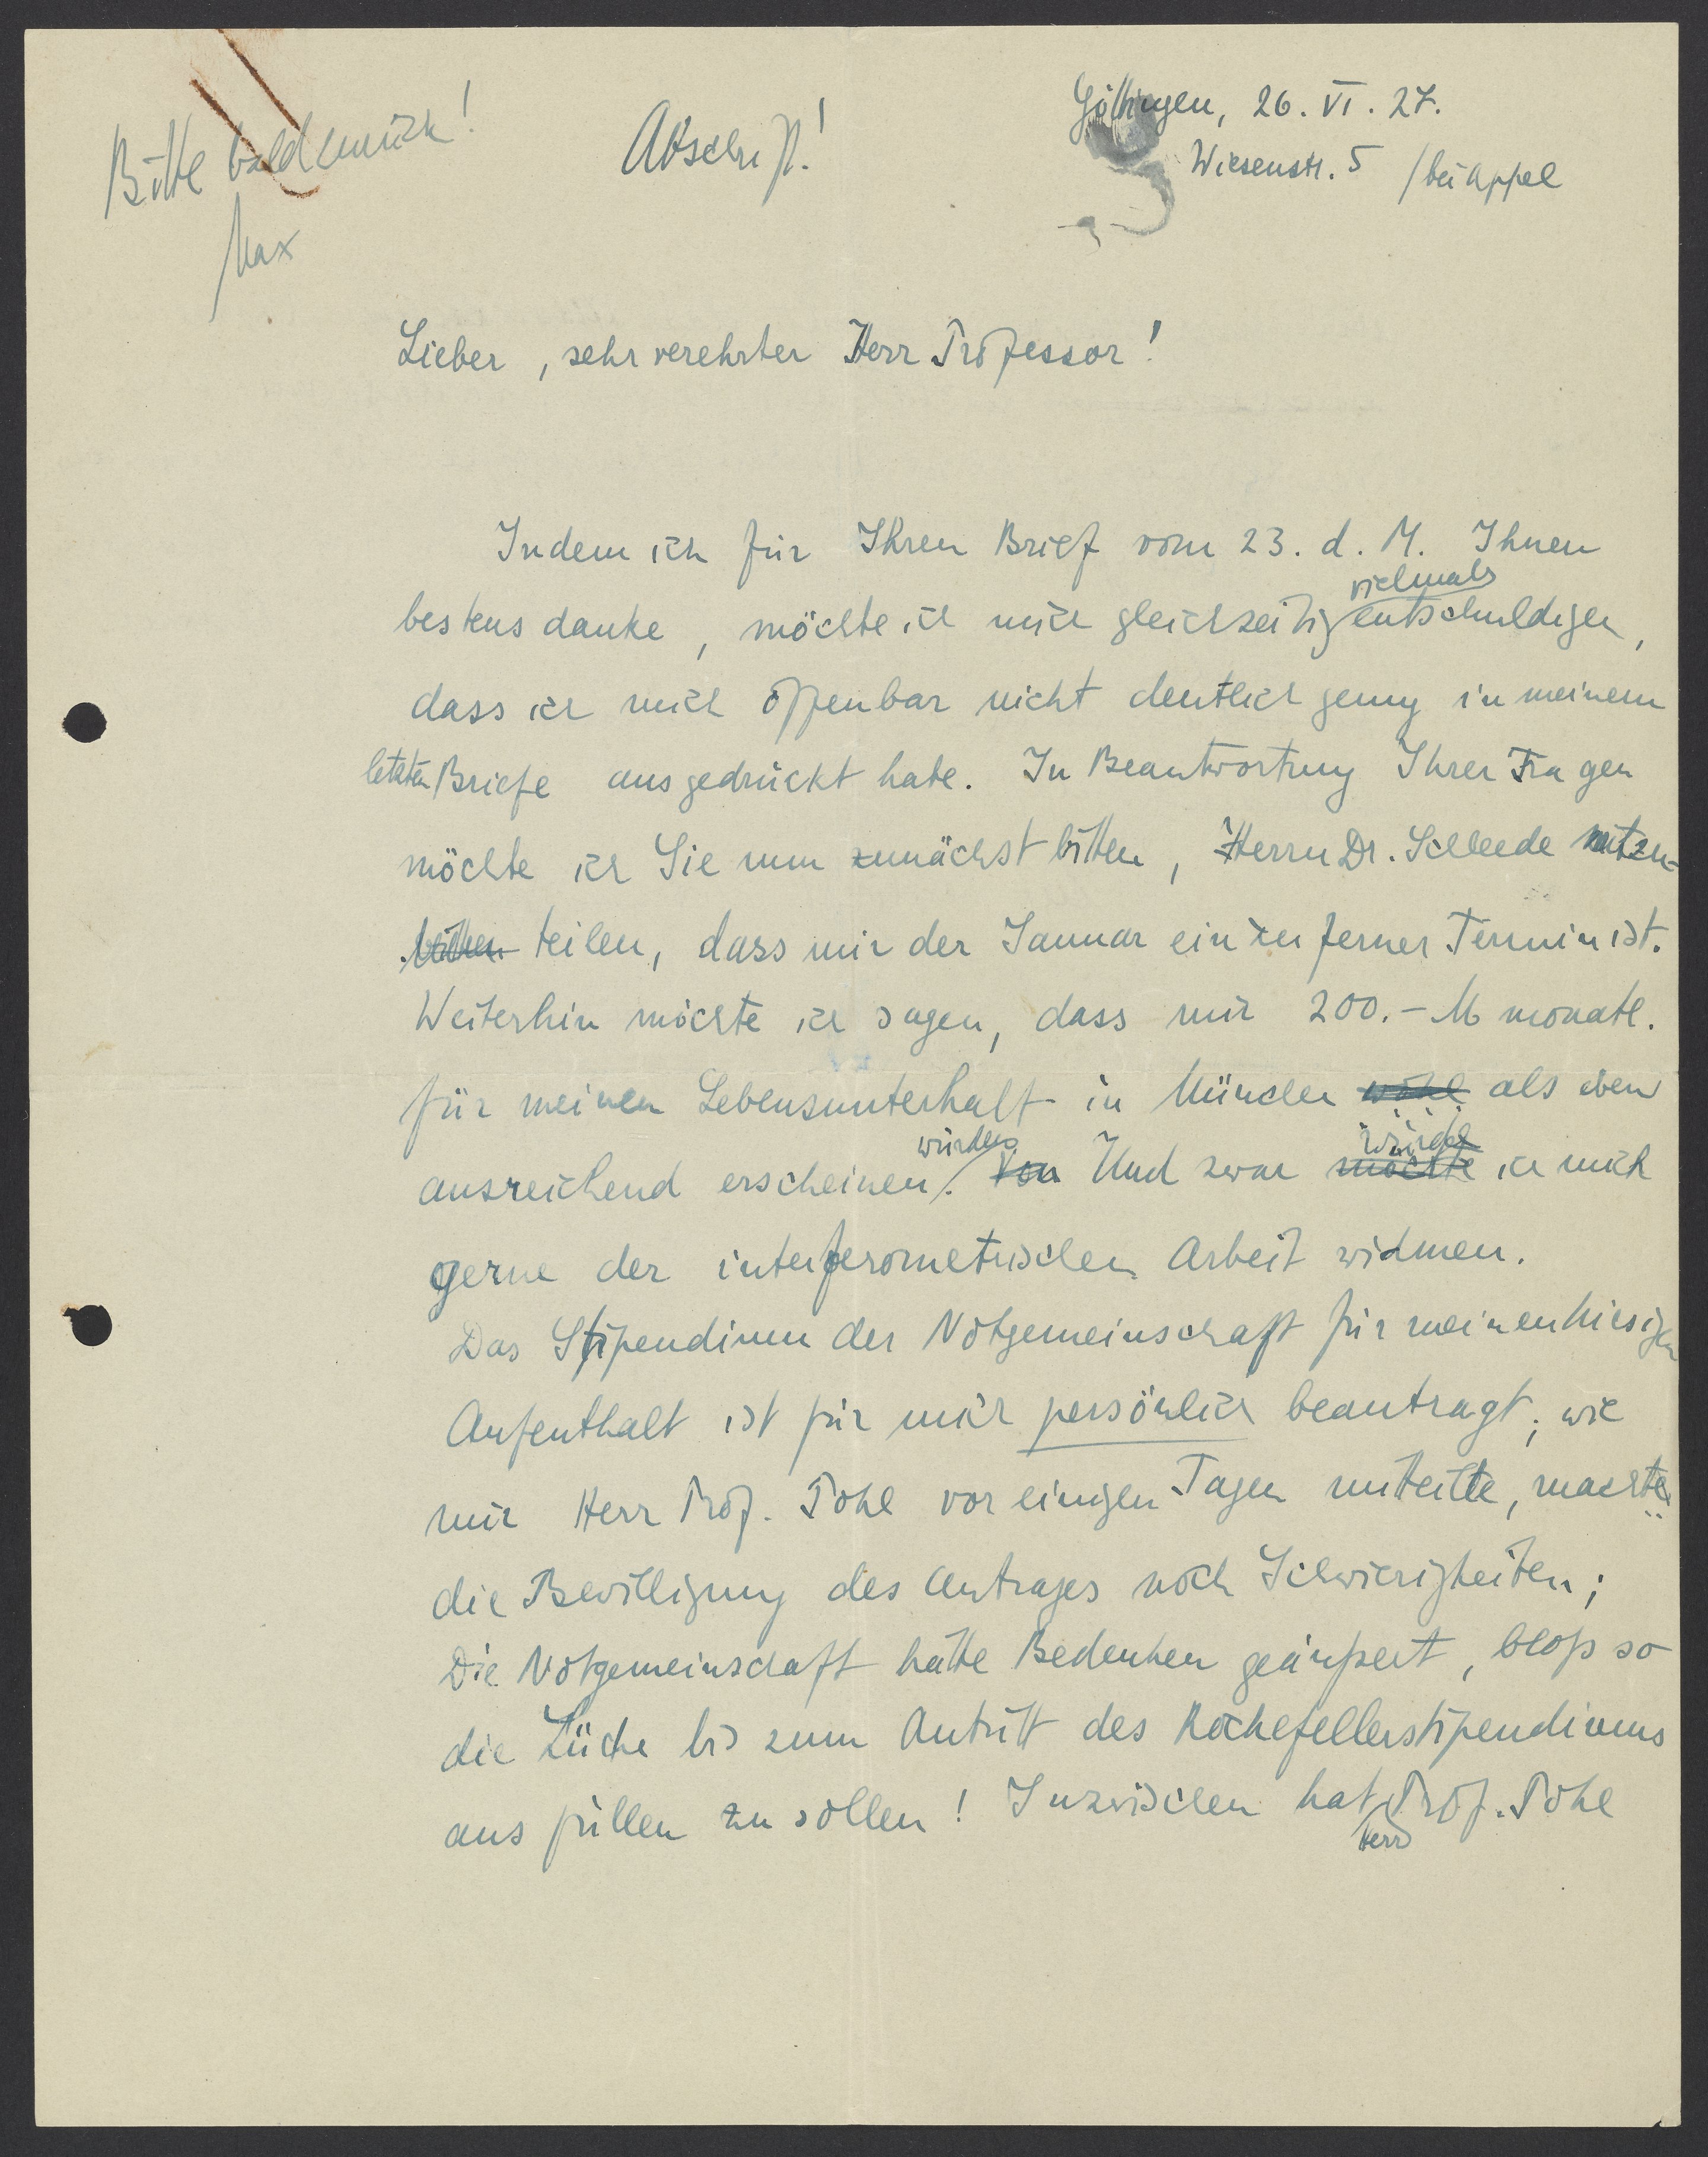 Bitte bald zurück!
Max
Abschrift!
Göttingen, 26. VI. 27.
Wiesenstr. 5 /bei Appel
Lieber, sehr verehrter Herr Professor!
Indem ich für Ihren Brief vom 23. d. M. Ihnen
bestens danke, möchte ich mich gleichzeitig vielmals entschuldigen,
dass ich mich offenbar nicht deutlich genug in meinem
letzten Briefe ausgedrückt habe. In Beantwortung Ihrer Fragen
möchte ich Sie nun zunächst bitten, Herrn Dr. Schleede mitzu-
teilen, dass mir der Januar ein zu ferner Termin ist.
Weiterhin möchte ich sagen, dass mir 200.- M monatl.
für meinen Lebensunterhalt in München wohl als eben
ausreichend erscheinen würden. Von Und zwar möchte würde ich mich
gerne der interferometrischen Arbeit widmen.
Das Stipendium der Notgemeinschaft für meinen hiesigen
Aufenthalt ist für mich persönlich beantragt; wie
mir Herr Prof. Pohl vor einigen Tagen mitteilte, machte
die Bewilligung des Antrages noch Schwierigkeiten;
Die Notgemeinschaft hätte Bedenken geäußert, bloß so
die Lücke bis zum Antritt des Rockefellerstipendiums
ausfüllen zu sollen! Inzwischen hat Herr Prof. Pohl